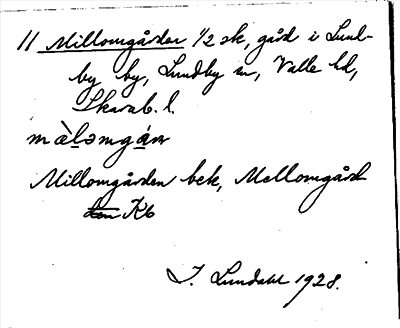 11 Millomgården 1/2 sk, gård i Lund-
by by, Lundby sn, Valle hd,
Skarab. l.
mɛ̀lomgán
Millomgården bek, Mellomgård
den Kb
I. Lundahl 1928.